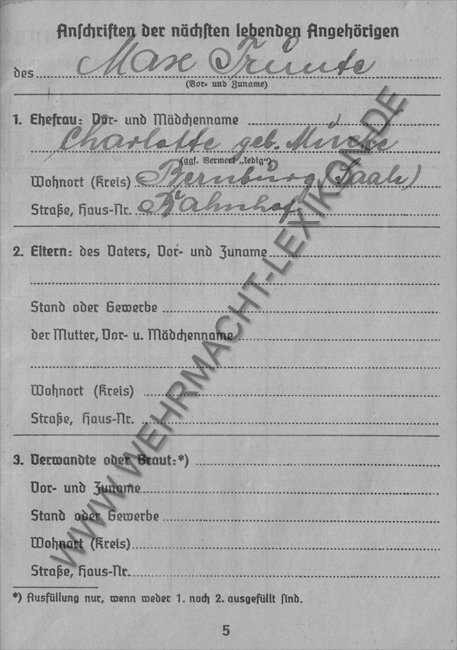 Anschriften der nächsten lebenden Angehörigen
des Max
(Vor- und Zuname)
1. Ehefrau: Vor- und Mädchenname
Charlotte geb.
(ggf. Vermerk „ledig“)
Wohnort (Kreis) Bernburg (Saale)
Straße, Haus-Nr. Bahnhof
2. Eltern: des Vaters, Vor- und Zuname
Stand oder Gewerbe
der Mutter, Vor- u. Mädchenname
Wohnort (Kreis)
Straße, Haus-Nr.
3. Verwandte oder Braut:*)
Vor- und Zuname
Stand oder Gewerbe
Wohnort (Kreis)
Straße, Haus-Nr.
*) Ausfüllung nur, wenn weder 1. noch 2. ausgefüllt sind.
5
WWW.WEHRMACHT-LEXIKON.DE